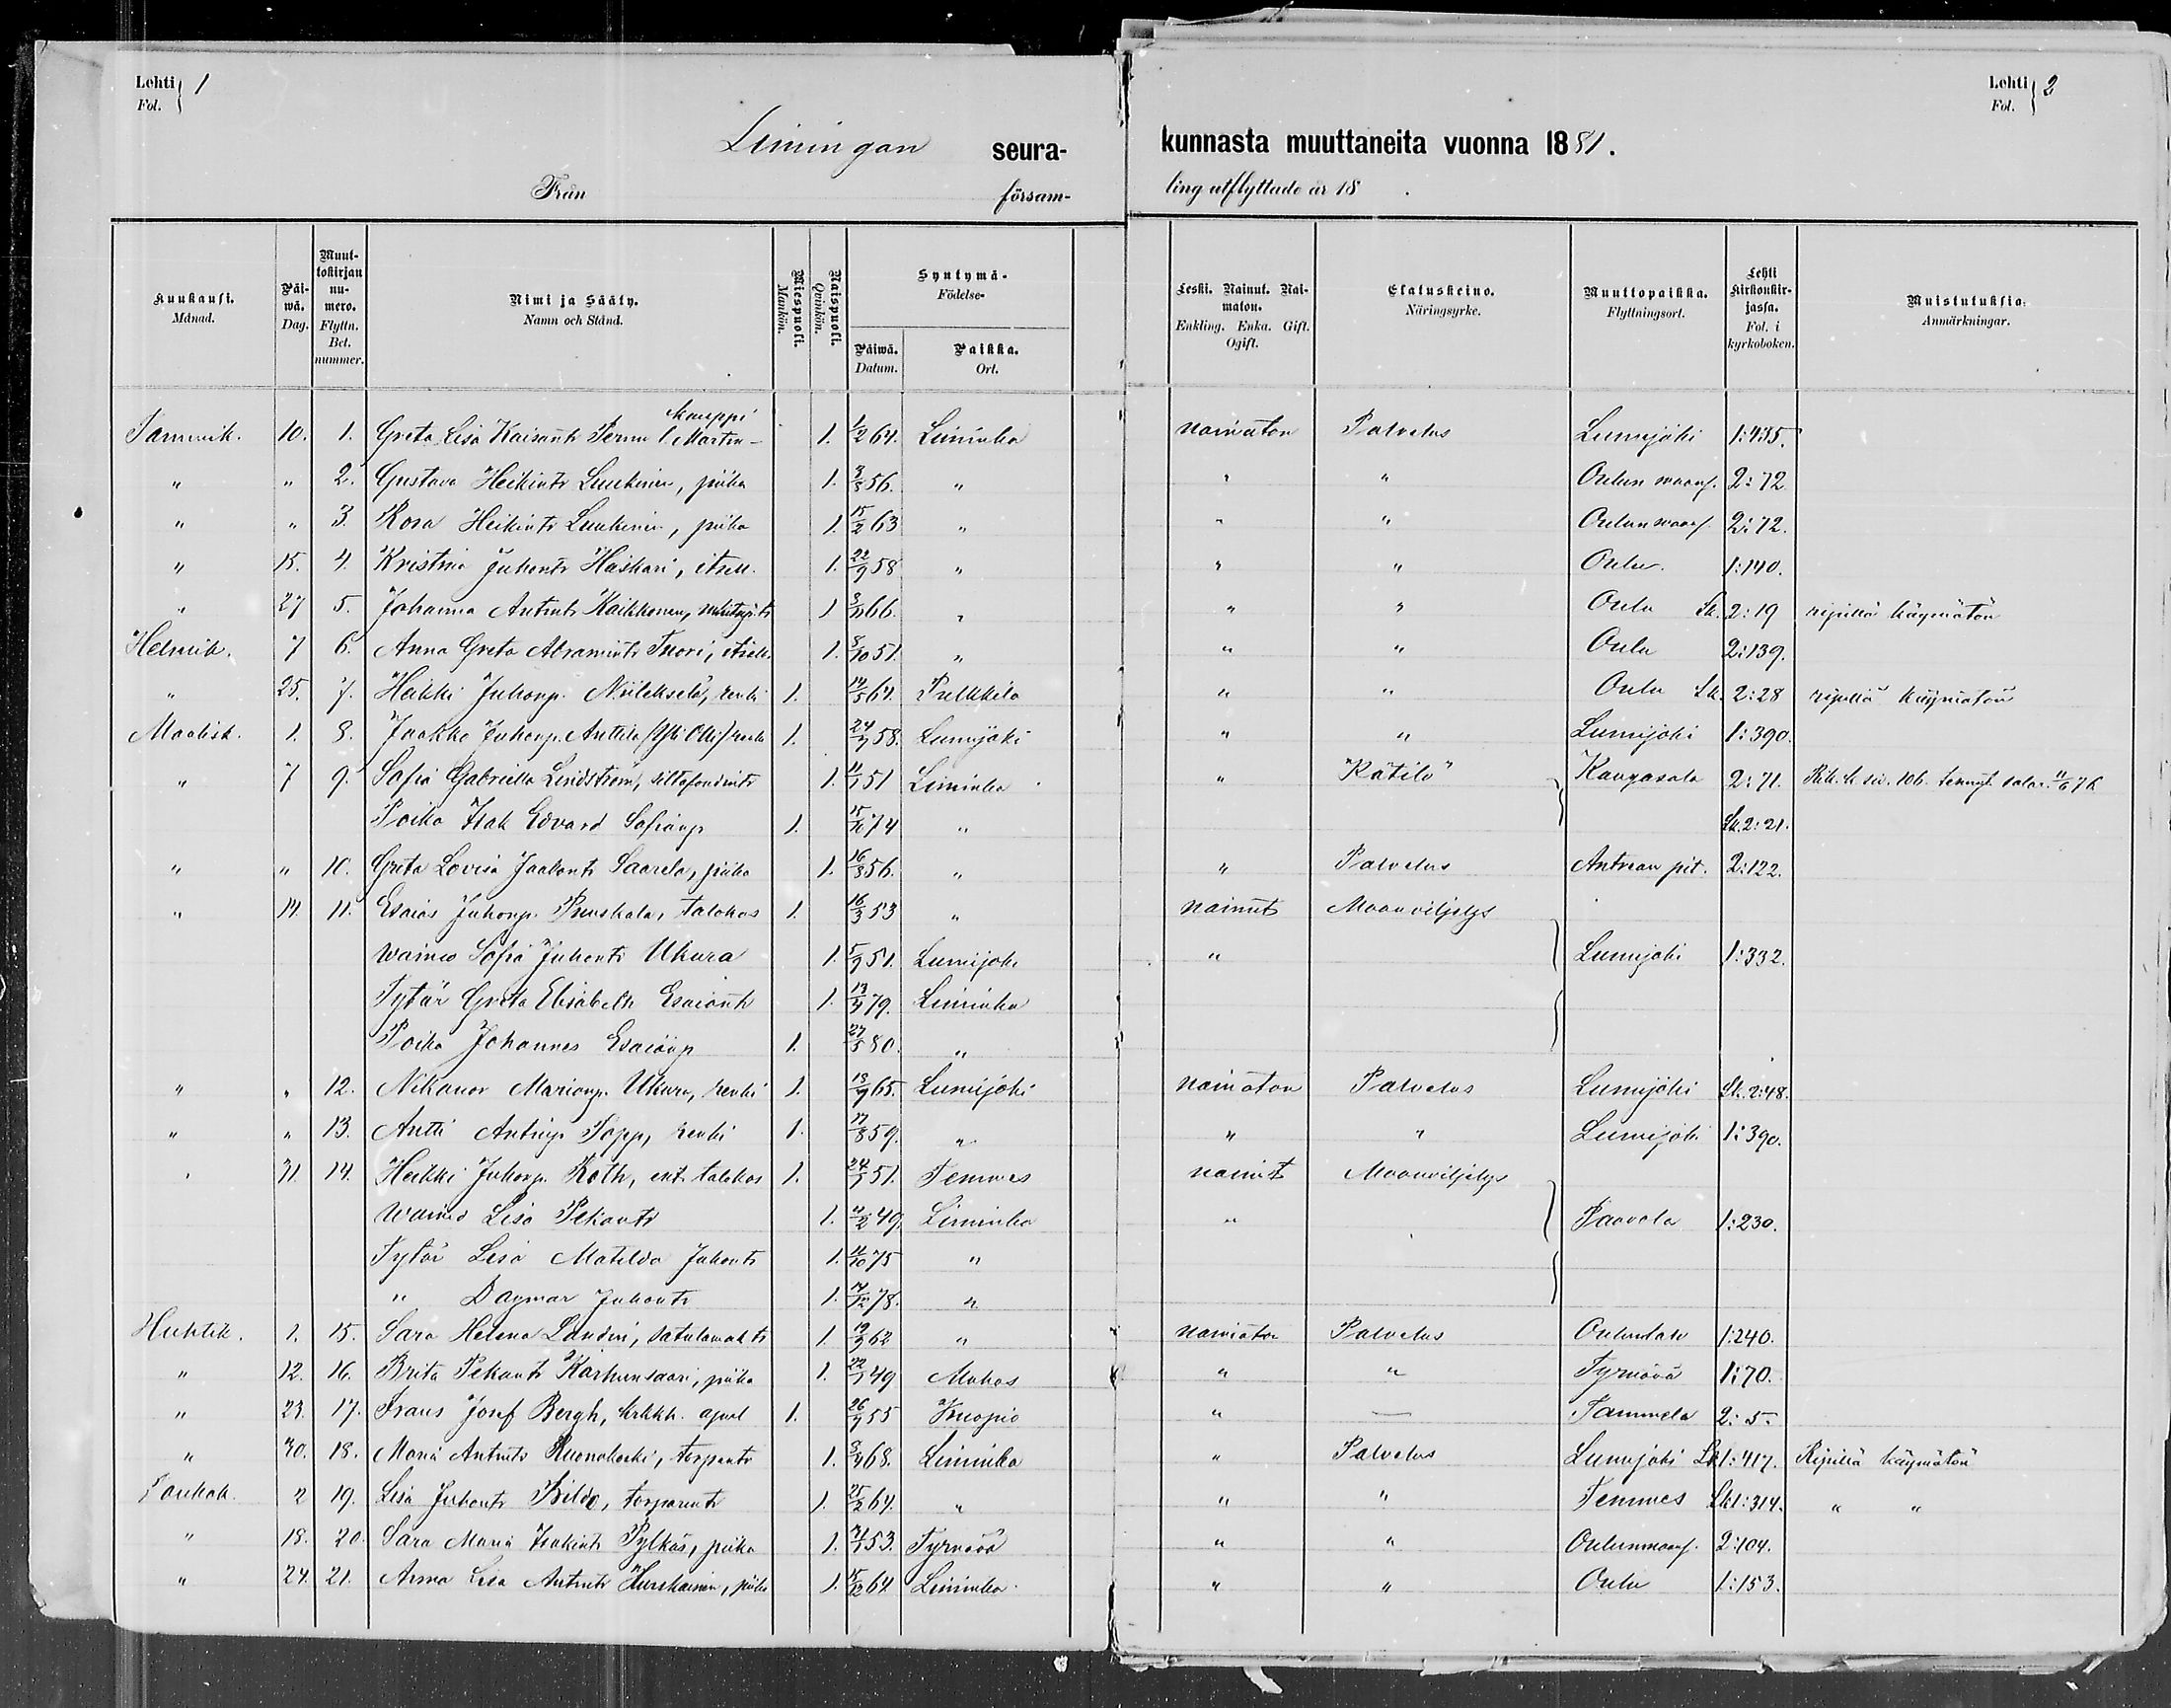 Lehti } 1
Fol.
Lehti } 2
Fol.
Limingan seura- kunnasta muuttaneita vuonna 1881.
Från försam- ling utflyttade år 18 .
Kuukausi. Månad. | Päiwä. Dag. | Muuttokirjan numero. Flyttn. Bet. nummer. | Nimi ja Sääty. Namn och Stånd. | Miespuoli. Mankön. | Naispuoli. Qvinkön. | Syntymä- Födelse- Päiwä. Datum. | Paikka. Ort. | Leski. Nainut. Naimaton. Enkling. Enka. Gift. Ogift. | Elatuskeino. Näringsyrke. | Muuttopaikka. Flyttningsort. | Lehti Kirkonkirjassa. Fol. i kyrkoboken. | Muistutuksia. Anmärkningar.
Kauppi
Tammik. 10. 1. Greta Lisa Kaisant. Martin- 1. 1/2 64. Liminka naimaton Palvelus Lumijoki 1:435.
" " 2. Gustava Heikint. Luukinen, piika 1. 3/3 56. " " " Oulun maas. 2:72.
" " 3. Kosa Heikint. Luukinen, piika 1. 15/2 63 " " " Oulun maas. 2:72.
" 15. 4. Kristina Juhont. Haskari, itsell. 1. 22/9 58 " " " Oulu. 1:140.
" 27 5. Johanna Antint. Kaikkonen, 1 66. " " " Oulu Lk. 2:19 ripillä käymätön
Helmik. 7 6. Anna Greta Abramint. Tuori, itsell. 1. 8/10 51. " " " Oulu 2:139.
" 25. 7. Heikki Juhonp. Niilekselä, renki 1. 14/5 64. Pulkkila " " Oulu Lk. 2:28 ripillä käymätön
Maalisk. 1. 8. Jaakko Juhonp. Anttila renki 1. 24/7 58. Lumijoki " " Lumijoki 1:390.
" 7 9. Sofia Gabriella Lindström, siltafoudint. 1. 51 Liminka " "Kätilö" Kangasala 2:71. Rik. k. siv. 106. 11/6 76
Poika Isak Edvard Sofianp. 1. 15/10 74 " Lk. 2:21.
" " 10. Greta Lovisa Jaakont. Saarela, piika 1. 16/3 56. " " Palvelus Antrean pit. 2:122.
" 14. 11. Esaias Juhonp. Puuskala, talokas 1. 16/3 53 " nainut Maanviljelys
Waimo Sofia Juhont. Ukura 1. 5/9 51. Lumijoki " Lumijoki 1:332.
Tytär Greta Elisabeth Esaiant. 1. 13/4 79. Liminka
Poika Johannes Esaianp. 1. 27/5 80. "
" " 12. Nikanor Marianp. Ukura, renki 1. 13/9 65. Lumijoki naimaton Palvelus Lumijoki Lk. 2:48.
" " 13. Antti Antinp. Papp, renki 1. 17/8 59. " " " Lumijoki 1:390.
" 31. 14. Heikki Juhonp. Koth, ent. talokas 1. 24/7 51. Temmes nainut Maanviljelys
Waimo Lisa Pekant. 1. 11/2 49. Liminka " Paavola 1:230.
Tytär Lisa Matilda Juhont. 1. 11/10 75 "
" Dagmar Juhont. 1. 14/12 78. "
Huhtik. 1. 15. Sara Helena Landini, satulamakt. 1. 19/3 62 " naimaton Palvelus Oulunsalo 1:240.
" 12. 16. Brita Pekant. Karhunsaari, piika 1. 22/1 49 Muhos " " Tyrnävä 1:70.
" 23. 17. Frans Josef Bergh, kirkkh. apul 1. 26/4 55 Kuopio " — Tammela 2:5.
" 30. 18. Maria Antint. Ruonakoski, torparint. 1. 68. Liminka " Palvelus Lumijoki Lk 1:417. Ripillä käymätön
Toukok. 2 19. Lisa Juhont. Bildo, torparint. 1. 25/2 64. " " " Temmes Lk 1:314. " "
" 18. 20. Sara Maria Isakint. Pylkäs, piika 1. 53. Tyrnävä " " Oulunmaas. 2:104.
" 24. 21. Anna Lisa Antint. Hurskainen, piika 1. 15/12 64 Liminka " " Oulu 1:153.